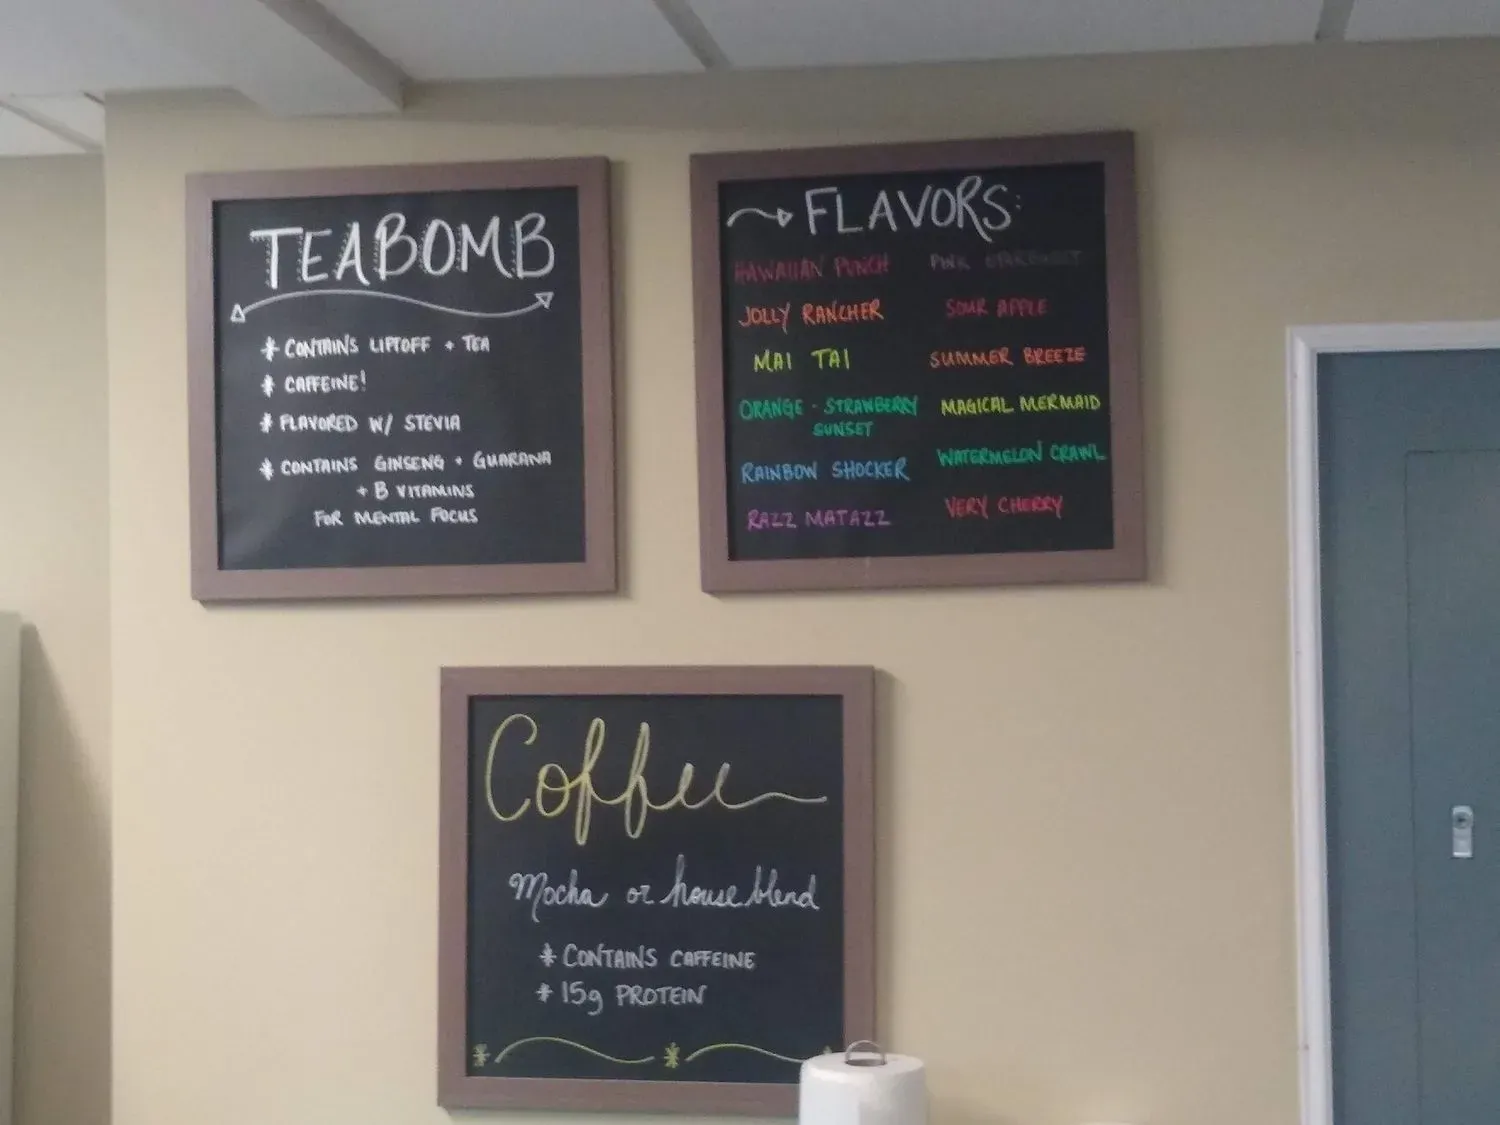 TEABOMB
* CONTAINS LIFTOFF + TEA
* CAFFEINE!
* FLAVORED W/ STEVIA
* CONTAINS GINSENG + GUARANA
+ B VITAMINS
FOR MENTAL FOCUS
FLAVORS:
HAWAIIAN PUNCH
JOLLY RANCHER
MAI TAI
ORANGE - STRAWBERRY
SUNSET
RAINBOW SHOCKER
RAZZ MATAZZ
PINK
SOUR APPLE
SUMMER BREEZE
MAGICAL MERMAID
WATERMELON CRAWL
VERY CHERRY
Coffee
Mocha or house blend
* CONTAINS CAFFEINE
* 15g PROTEIN